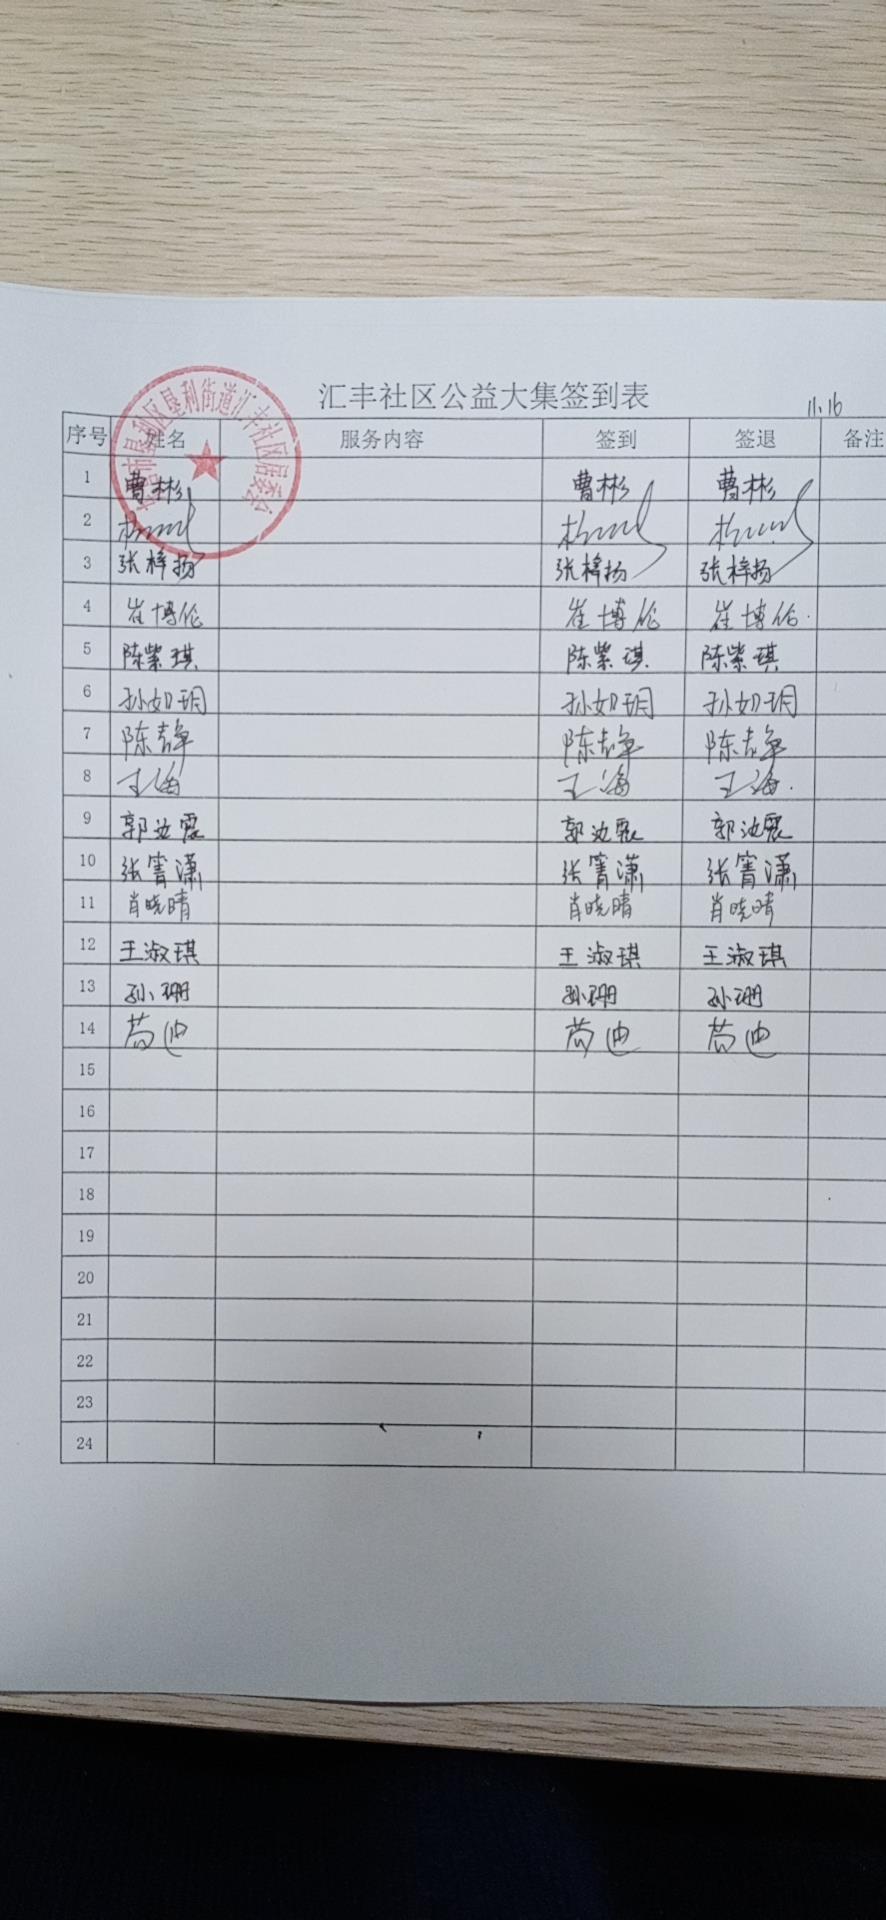 汇丰社区公益大集签到表
11.16
序号 姓名 服务内容 签到 签退 备注
东营市垦利区垦利街道汇丰社区居委会
1 曹彬 曹彬 曹彬
2
3 张梓扬 张梓扬 张梓扬
4 崔博伦 崔博伦 崔博伦
5 陈紫琪 陈紫琪 陈紫琪
6 孙如玥 孙如玥 孙如玥
7 陈静 陈静 陈静
8 王海 王海 王海
9 郭汝震 郭汝震 郭汝震
10 张箐潇 张箐潇 张箐潇
11 肖晓晴 肖晓晴 肖晓晴
12 王淑琪 王淑琪 王淑琪
13 孙珊 孙珊 孙珊
14 苟迪 苟迪 苟迪
15
16
17
18
19
20
21
22
23
24